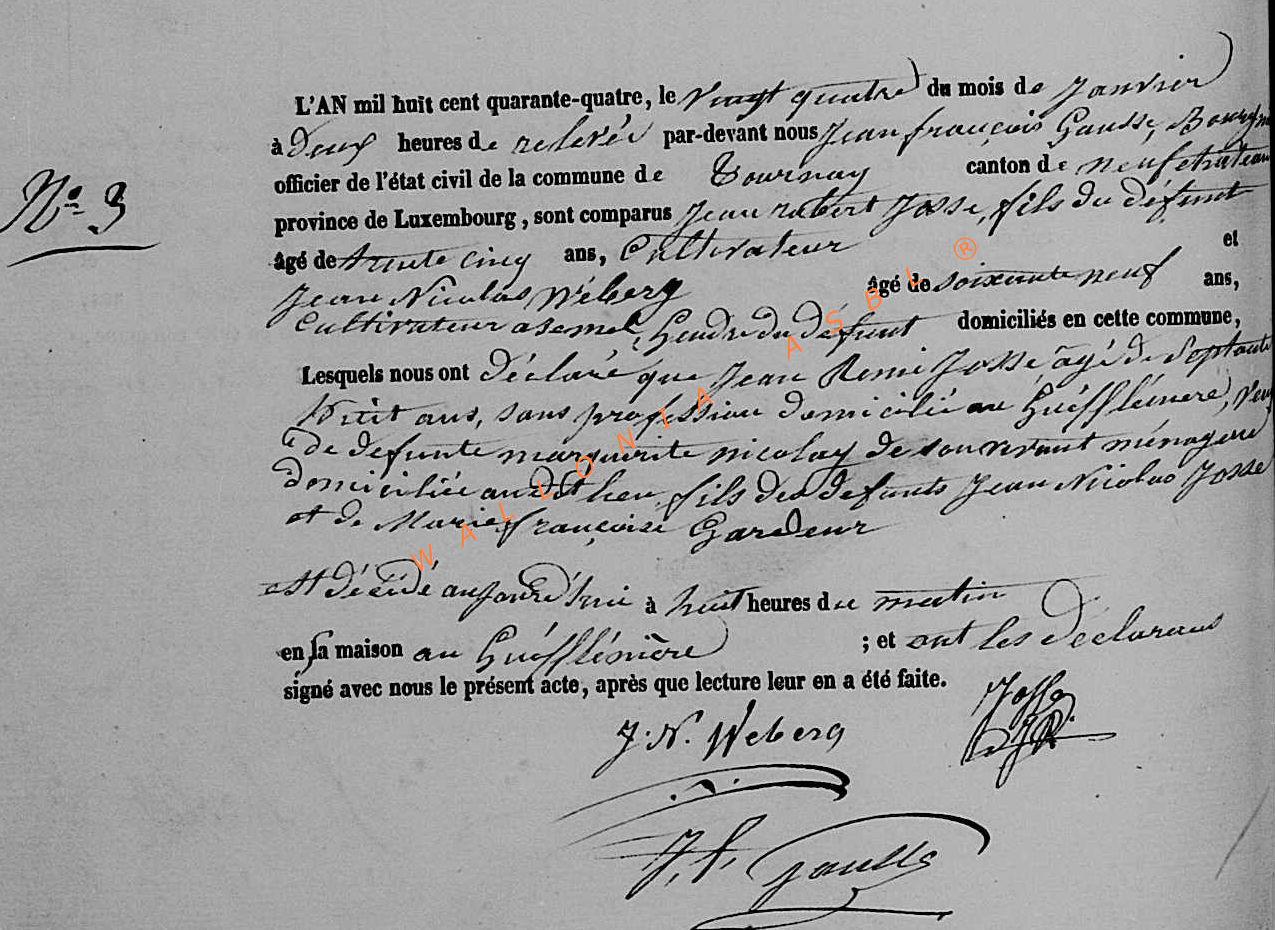 L'AN mil huit cent quarante-quatre, le vingt quatre du mois de Janvier
à deux heures de relevée par-devant nous Jean françois Gausse, Bourgm
officier de l'état civil de la commune de Tournay canton de neufchateau
N° 3
province de Luxembourg, sont comparus Jean robert Josse, fils du défunt
âgé de trente cinq ans, Cultivateur et
Jean Nicolas Weberg âgé de soixante neuf ans,
Cultivateur a semel, Gendre du défunt domiciliés en cette commune,
Lesquels nous ont déclaré que Jean Remi Josse, agé de Septante
huit ans, sans profession domicilié au, veuf
de defunte marguerite nicolay de son vivant ménagere
domiciliée au dit lieu fils des defunts Jean Nicolas Josse
et de Marie françoise Gardeur
est décédé aujourd'hui à huit heures du matin
en sa maison au ; et ont les déclarans
signé avec nous le présent acte, après que lecture leur en a été faite.
J. N. Weberg Josse
J R
J. f. Gausse
WALLONIA ASBL ®